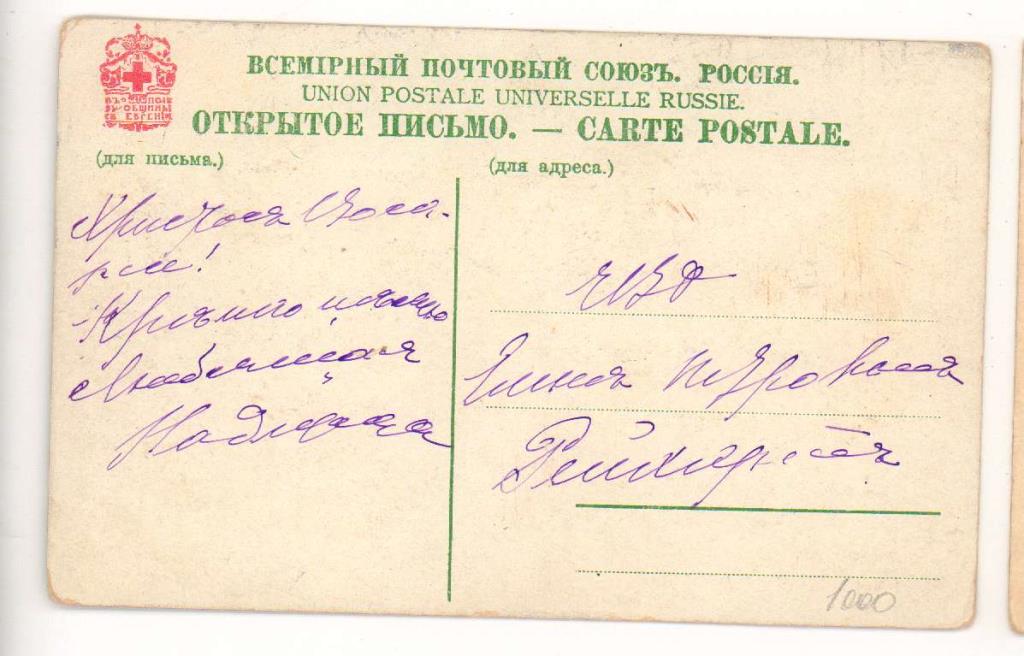 ВЪ ПОЛЬЗУ ОБЩИНЫ СВ ЕВГЕНІИ
ВСЕМІРНЫЙ ПОЧТОВЫЙ СОЮЗЪ. РОССІЯ.
UNION POSTALE UNIVERSELLE RUSSIE.
ОТКРЫТОЕ ПИСЬМО. — CARTE POSTALE.
(для письма.)
(для адреса.)
Христосъ Воск-
рсе!
Крѣпко цѣлую
Любящая
Надежда
ЕВР
Елена Петровна
1000